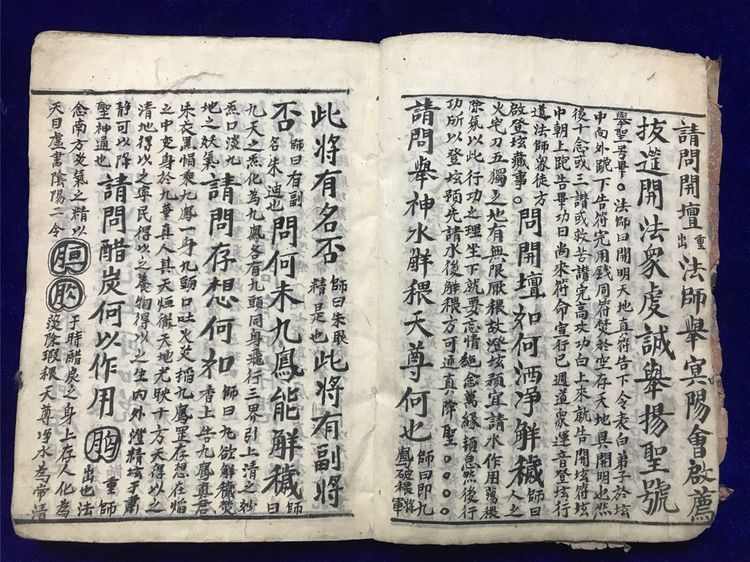 請問開壇重出法師舉㝠陽會啟薦
拔道開法眾虔誠舉揚聖號
舉聖号畢。法師曰開明天地直符告下令表白弟子於坛
中向外號下告符完用錢同符焚於空存天地與開明也然
後十念或三讃或救苦讃完高功白上來就告開坛符坛
中朝上跪告畢功曰尚來符命宣行已週道眾運音登坛行
道法師眾徒方
啟登坛藏事。
問開壇如何洒凈解穢師曰人之
火宅刀五獨之地有無限厭穢故澄坛宜請水作用蕩穢
除氛以此行功之理生下就要忘情絕念萬緣頓息然後行
功所以登坛預先請水後解穢方可通真降聖。。。。
請問舉神水解穢天尊何也師曰即九鳳破穢將軍
此將有名否師曰朱取精是也此將有副將
否師曰有副名朱迪也問何未九鳳能解穢師曰
九天之炁化為九鳳各有九頭同身飛行三界引上清之妙
炁口淡九
地之妖氣
請問存想何如師曰九欲解穢焚
香上告九鳳真君
朱衣黑幅乘九鳳一身九頭口吐火炎稻九鳳罡存想在焰
之中变身於九華真人具天烜天地光映十方天得以之
清地得以之寧民得以之養物得以之生内外澄精坛宇肅
靜可以降
聖神通也
請問醋炭何以作用重出也師法
念南方炎氣之精以
天目虛書陰陽二令
于時醋炭之身上存人化為
淡除瑕穢天尊凈水為帝清